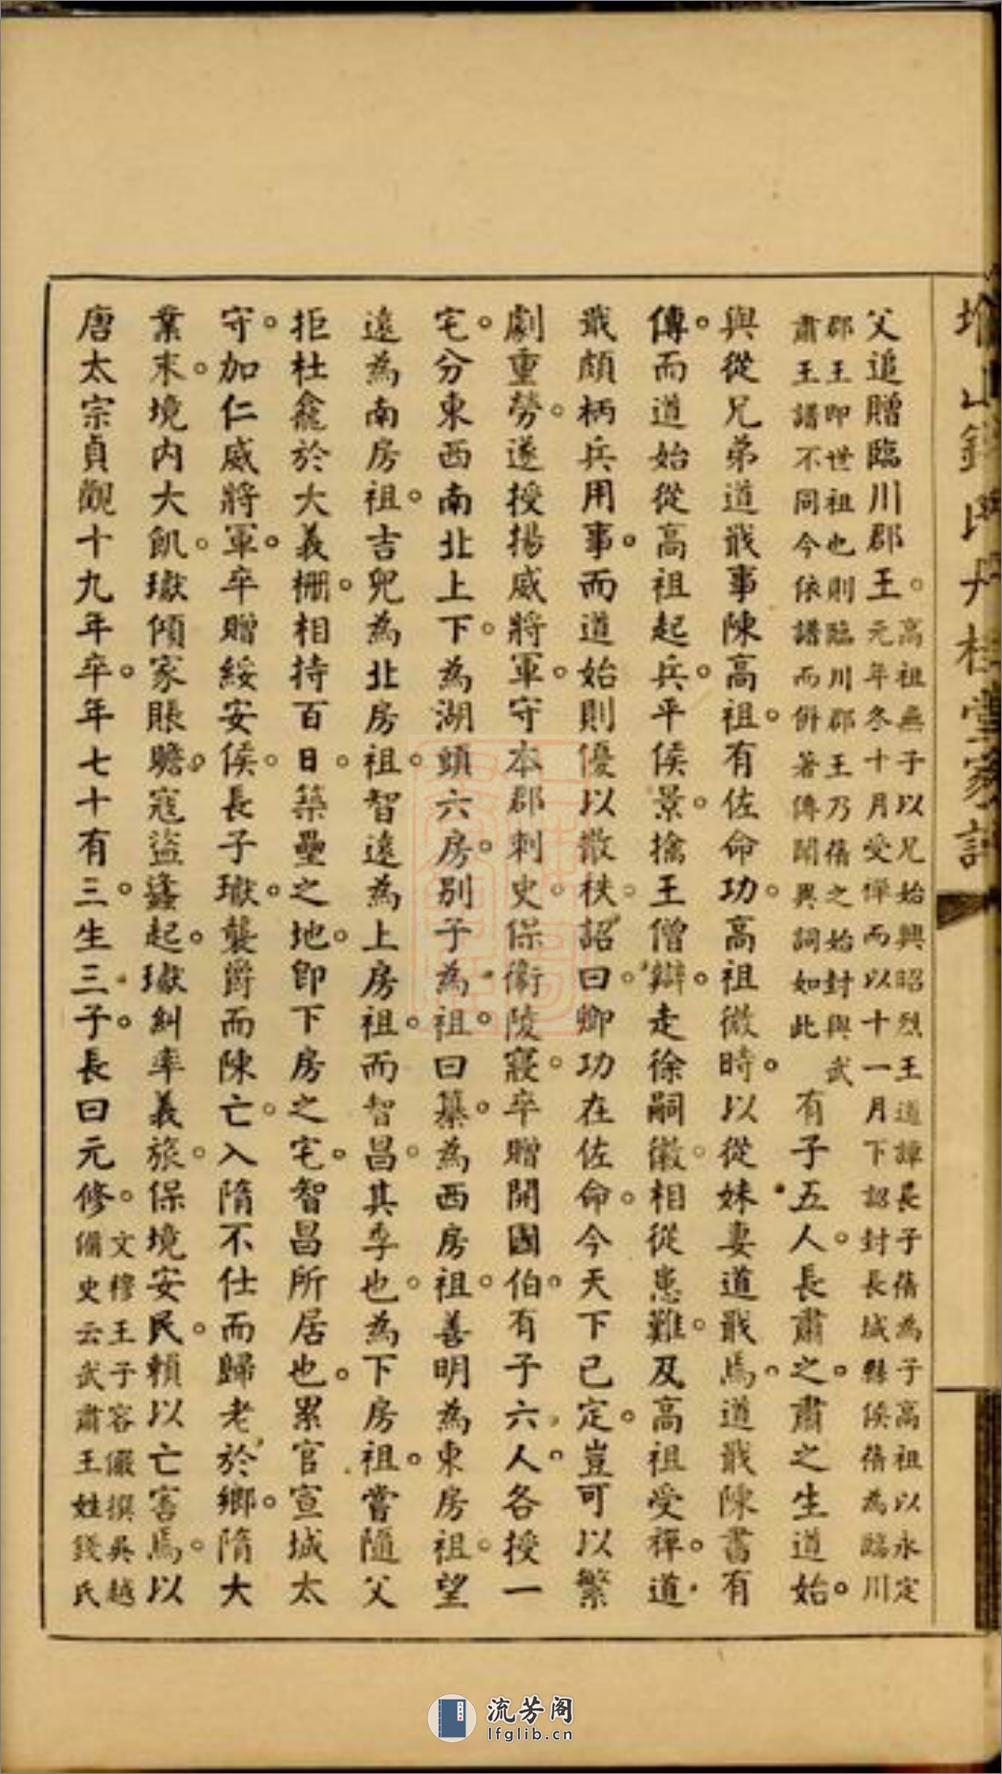 父追贈臨川郡王。高祖無子以兄始興昭烈王道譚長子蒨為子高祖以永定
元年冬十月受禪而以十一月下詔封長城縣侯蒨為臨川
郡王即世祖也則臨川郡王乃蒨之始封與武
肅王譜不同今依譜而併著傳聞異詞如此有子五人。長肅之。肅之生道始。
與從兄弟道戢事陳高祖。有佐命功。高祖微時。以從妹妻道戢焉。道戢陳書有
傳。而道始從高祖起兵。平侯景。擒王僧辯。走徐嗣徽。相從患難。及高祖受禪。道
戢頗柄兵用事。而道始則優以散秩。詔曰。卿功在佐命。今天下已定。豈可以繁
劇重勞。遂授揚威將軍。守本郡刺史。保衛陵寢。卒贈開國伯。有子六人。各授一
宅。分東西南北上下。為湖頭六房。別子為祖。曰纂。為西房祖。善明為東房祖。望
遠為南房祖。吉兒為北房祖。智遠為上房祖。而智昌其季也。為下房祖。嘗隨父
拒杜龕於大義柵。相持百日。築壘之地。即下房之宅。智昌所居也。累官宣城太
守。加仁威將軍。卒贈綏安侯。長子瓛。襲爵而陳亡。入隋不仕而歸老於鄉。隋大
業末。境內大飢。瓛傾家賬贍。寇盜蠭起。瓛糾率義旅。保境安民。賴以亡害焉。以
唐太宗貞觀十九年卒。年七十有三。生三子。長曰元修。文穆王子容儼撰吳越
備史云武肅王姓錢氏
桂堂家譜
流芳阁
lfglib.cn